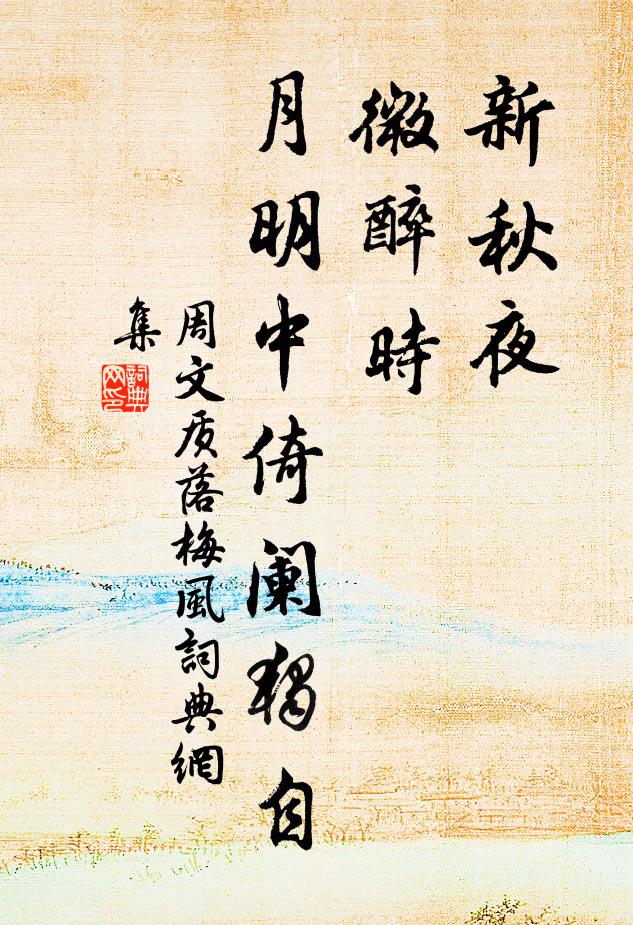 新秋夜
微醉時
月明中倚阑獨自
周文质落梅風詞典網
集
詞典
网印